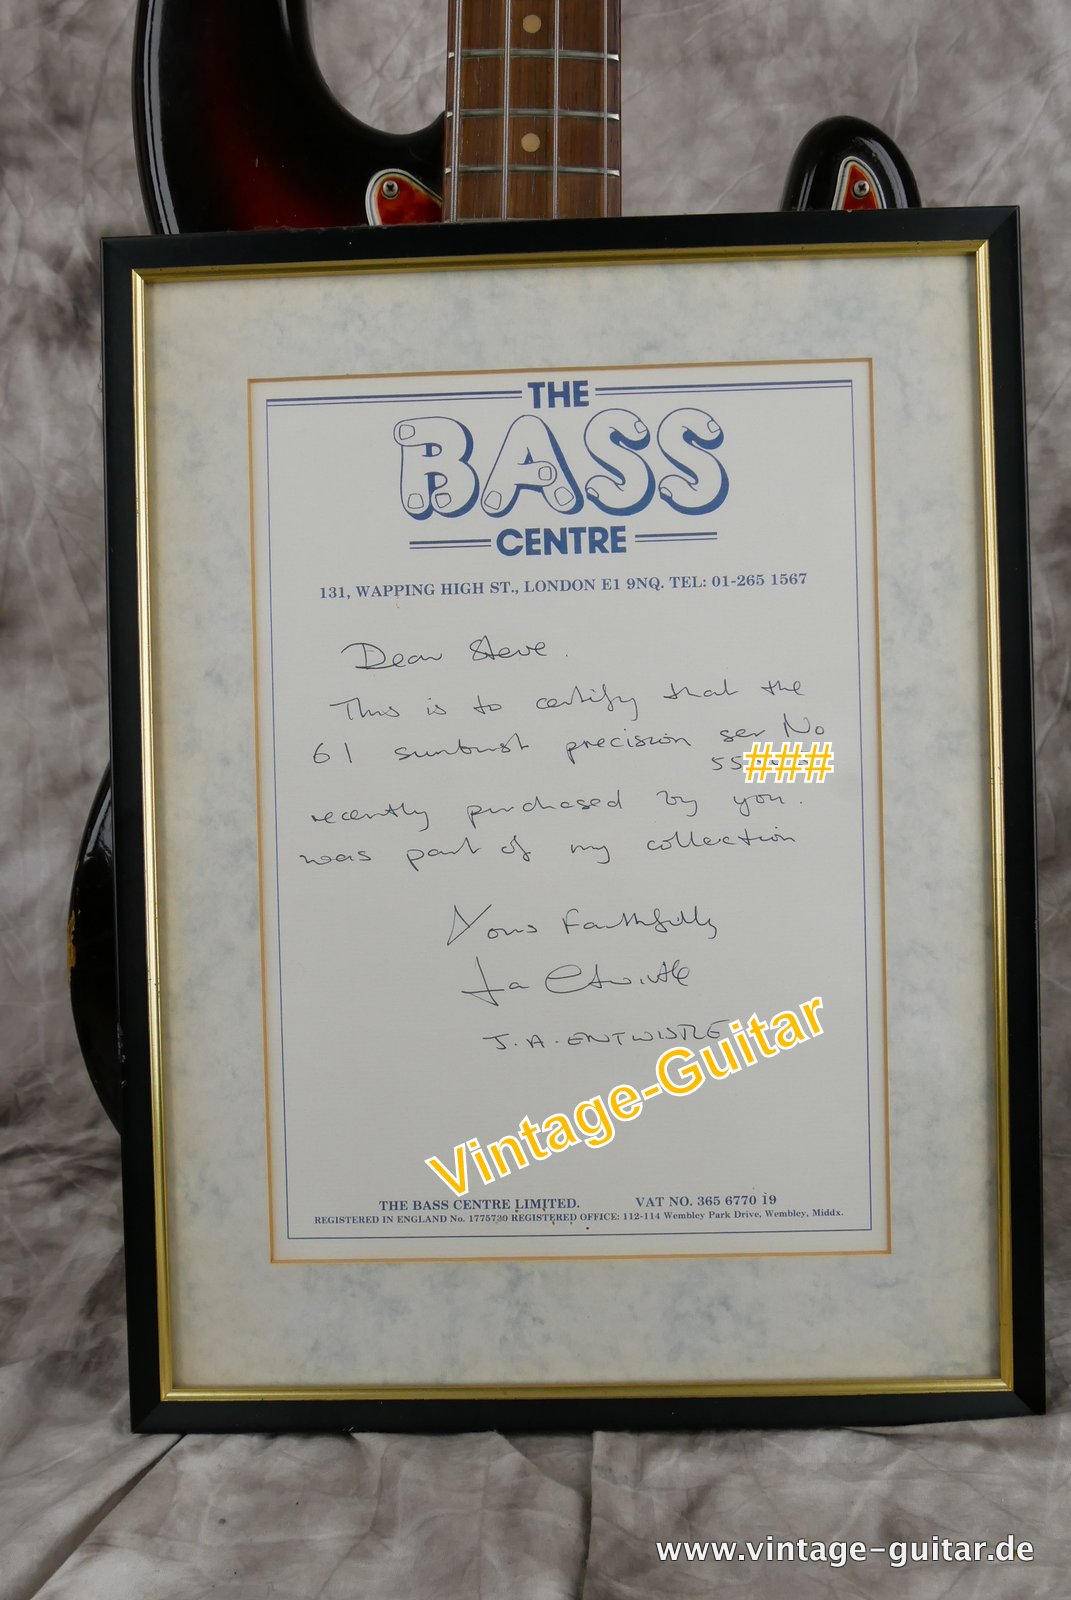 THE
BASS
CENTRE
131, WAPPING HIGH ST., LONDON E1 9NQ. TEL: 01-265 1567
Dear Steve.
This is to certify that the
61 sunburst precision ser No
55###
recently purchased by you.
was part of my collection
Yours Faithfully
J A Entwistle
J. A. ENTWISTLE
Vintage-Guitar
THE BASS CENTRE LIMITED. VAT NO. 365 6770 19
REGISTERED IN ENGLAND No. 1775730 REGISTERED OFFICE: 112-114 Wembley Park Drive, Wembley, Middx.
www.vintage-guitar.de